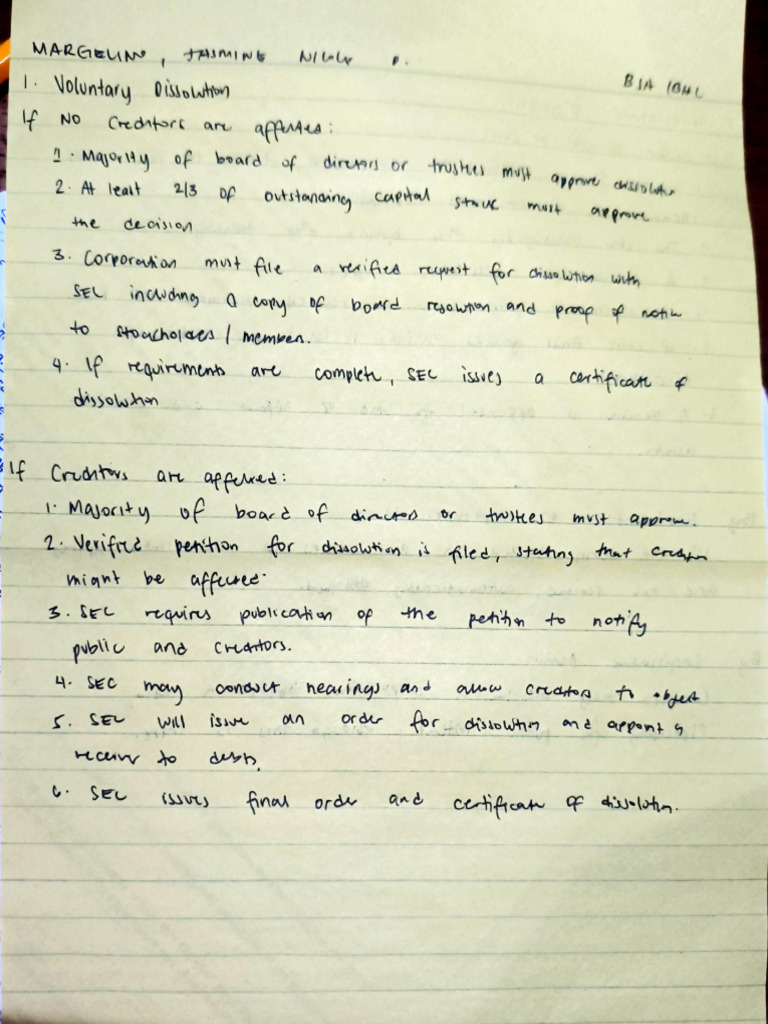 MARGELINO, JASMINE NICOLE P.
BSA 1BHL
1. Voluntary Dissolution
If NO Creditors are affected:
1. Majority of board of directors or trustees must approve dissolution
2. At least 2/3 of outstanding capital stock must approve
the decision
3. Corporation must file a verified request for dissolution with
SEC including a copy of board resolution and proof of notice
to stockholders / members.
4. If requirements are complete, SEC issues a certificate of
dissolution
If Creditors are affected:
1. Majority of board of directors or trustees must approve.
2. Verified petition for dissolution is filed, stating that creditors
might be affected.
3. SEC requires publication of the petition to notify
public and creditors.
4. SEC may conduct hearings and allow creditors to object
5. SEC will issue an order for dissolution and appoint a
receiver to debts.
6. SEC issues final order and certificate of dissolution.